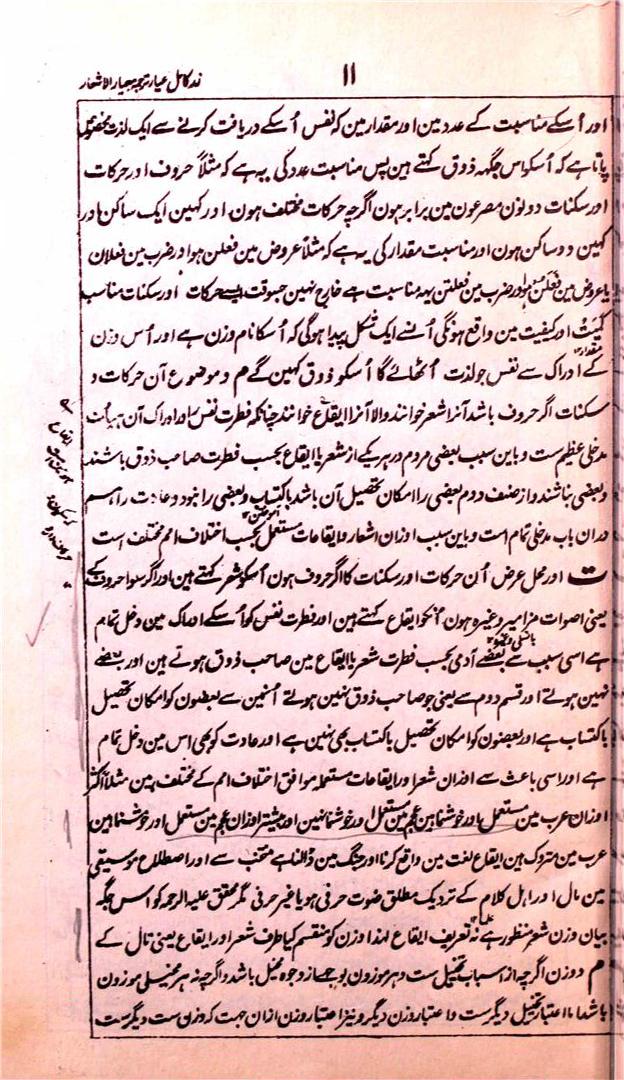 ۱۱
زر کامل عیار ترجمہ معیار الاشعار
اور اُسکے مناسبت کے عدد مین اور مقدار مین کہ نفس اُسکے دریافت کرنے سے ایک لذت مخصوص
پاتا ہے کہ اُسکو اس جگہہ ذوق کہتے ہین پس مناسبت عدد کی یہ ہے کہ مثلاً حروف اور حرکات
اور سکنات دونون مصرعون مین برابر ہون اگرچہ حرکات مختلف ہون اور کہین ایک ساکن اور
کہین دو ساکن ہون اور مناسبت مقدار کی یہ ہے کہ مثلاً عروض مین فعلن ہو اور ضرب مین فعلان
یا عروض مین فعلن ہو اور ضرب مین فعلتن یہہ مناسبت سے خارج نہین جسوقت ایسے حرکات اور سکنات مناسب
کمیت اور کیفیت مین واقع ہونگی اُنسے ایک شکل پیدا ہوگی کہ اُسکا نام وزن ہے اور اُس وزن
کے ادراک سے نفس جو لذت اُٹھائے گا اُسکو ذوق کہین گے م و موضوع آن حرکات و
سکنات اگر حروف باشد آنرا شعر خوانند والا آنرا ایقاع خوانند چنانکہ فطرت نفس را در ادراک آن ہیأت
مدخلی عظیم ست و باین سبب بعضی مردم در ہر یکے از شعر یا ایقاع بحسب فطرت صاحب ذوق باشند
و بعضی نباشند و از صنف دوم بعضی را امکان تحصیل آن باشد باکتساب و بعضی را نبود و عادت را ہم
دران باب مدخلی تمام است و باین سبب اوزان اشعار و ایقاعات مستعمل بحسب اختلاف امم مختلف است
ت اور محل عرض اُن حرکات اور سکنات کا اگر حروف ہون اُسکو شعر کہتے ہین اور اگر سوا حروف کے
یعنی اصوات مزامیر وغیرہ ہون اُسکو ایقاع کہتے ہین اور فطرت نفس کو اُسکے ادراک مین دخل تمام
ہے اسی سبب سے بعضے آدمی بحسب فطرت شعر یا ایقاع مین صاحب ذوق ہوتے ہین اور بعضے
نہین ہوتے اور قسم دوم سے یعنی جو صاحب ذوق نہین ہوتے اُنمین سے بعضون کو امکان تحصیل
باکتساب ہے اور بعضون کو امکان تحصیل باکتساب بھی نہین ہے اور عادت کو بھی اس مین دخل تمام
ہے اور اسی باعث سے اوزان شعر اور ایقاعات مستعملہ موافق اختلاف امم کے مختلف ہین مثلاً اکثر
اوزان عرب مین مستعمل اور خوشنما ہین عجم مین مستعمل اور خوشنما نہین اور بیشتر اوزان عجم مین مستعمل اور خوشنما ہین
عرب مین متروک ہین ایقاع لغت مین واقع کرنا اور جنگ مین ڈالنا ہے منتخب سے اور اصطلاح موسیقی
مین تال اور اہل کلام کے نزدیک مطلق صوت حرفی ہو یا غیر حرفی مگر محقق علیہ الرحمہ کو اس جگہہ
بیان وزن شعر منظور ہے نہ تعریف ایقاع لہذا وزن کو منقسم کیا طرف شعر اور ایقاع یعنی تال کے
م و وزن اگرچہ از اسباب تخییل ست و ہر موزون بوجہے از وجوہ مخیل باشد و اگرچہ نہ ہر مخیلی موزون
باشد اما اعتبار تخییل دیگر ست و اعتبار وزن دیگر و نیز اعتبار وزن ازان جہت کہ وزن ست دیگر ست